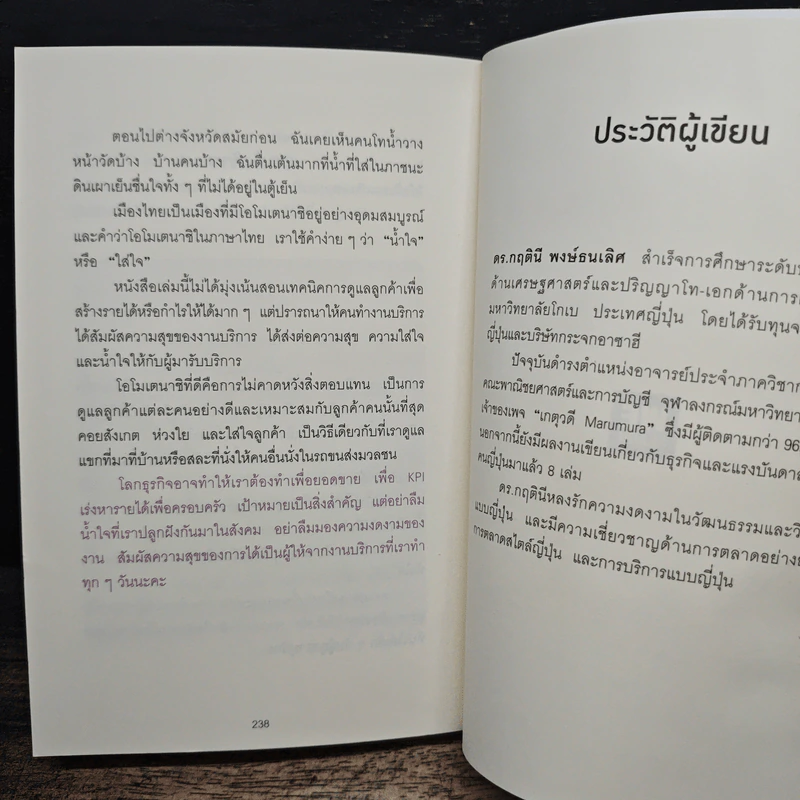 ตอนไปต่างจังหวัดสมัยก่อน ฉันเคยเห็นคนโทน้ำวาง
หน้าวัดบ้าง บ้านคนบ้าง ฉันตื่นเต้นมากที่น้ำที่ใส่ในภาชนะ
ดินเผาเย็นชื่นใจทั้ง ๆ ที่ไม่ได้อยู่ในตู้เย็น
เมืองไทยเป็นเมืองที่มีโอโมเตนาชิอยู่อย่างอุดมสมบูรณ์
และคำว่าโอโมเตนาชิในภาษาไทย เราใช้คำง่าย ๆ ว่า “น้ำใจ”
หรือ “ใส่ใจ”
หนังสือเล่มนี้ไม่ได้มุ่งเน้นสอนเทคนิคการดูแลลูกค้าเพื่อ
สร้างรายได้หรือกำไรให้ได้มาก ๆ แต่ปรารถนาให้คนทำงานบริการ
ได้สัมผัสความสุขของงานบริการ ได้ส่งต่อความสุข ความใส่ใจ
และน้ำใจให้กับผู้มารับบริการ
โอโมเตนาชิที่ดีคือการไม่คาดหวังสิ่งตอบแทน เป็นการ
ดูแลลูกค้าแต่ละคนอย่างดีและเหมาะสมกับลูกค้าคนนั้นที่สุด
คอยสังเกต ห่วงใย และใส่ใจลูกค้า เป็นวิธีเดียวกับที่เราดูแล
แขกที่มาที่บ้านหรือสละที่นั่งให้คนอื่นนั่งในรถขนส่งมวลชน
โลกธุรกิจอาจทำให้เราต้องทำเพื่อยอดขาย เพื่อ KPI
เร่งหารายได้เพื่อครอบครัว เป้าหมายเป็นสิ่งสำคัญ แต่อย่าลืม
น้ำใจที่เราปลูกฝังกันมาในสังคม อย่าลืมมองความงดงามของ
งาน สัมผัสความสุขของการได้เป็นผู้ให้จากงานบริการที่เราทำ
ทุก ๆ วันนะคะ
238
ประวัติผู้เขียน
ดร.กฤตินี พงษ์ธนเลิศ สำเร็จการศึกษาระดับ
ด้านเศรษฐศาสตร์และปริญญาโท-เอกด้านการ
มหาวิทยาลัยโกเบ ประเทศญี่ปุ่น โดยได้รับทุน
ญี่ปุ่นและบริษัทกระจกอาซาฮี
ปัจจุบันดำรงตำแหน่งอาจารย์ประจำภาควิชา
คณะพาณิชยศาสตร์และการบัญชี จุฬาลงกรณ์มหาวิทยา
เจ้าของเพจ “เกตุวดี Marumura” ซึ่งมีผู้ติดตามกว่า 96
นอกจากนี้ยังมีผลงานเขียนเกี่ยวกับธุรกิจและแรงบันดาล
คนญี่ปุ่นมาแล้ว 8 เล่ม
ดร.กฤตินีหลงรักความงดงามในวัฒนธรรมและ
แบบญี่ปุ่น และมีความเชี่ยวชาญด้านการตลาดอย่าง
การตลาดสไตล์ญี่ปุ่น และการบริการแบบญี่ปุ่น